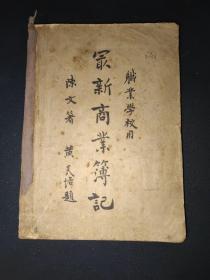 職業學校用
最新商業簿記
陳文著
黄炎培題